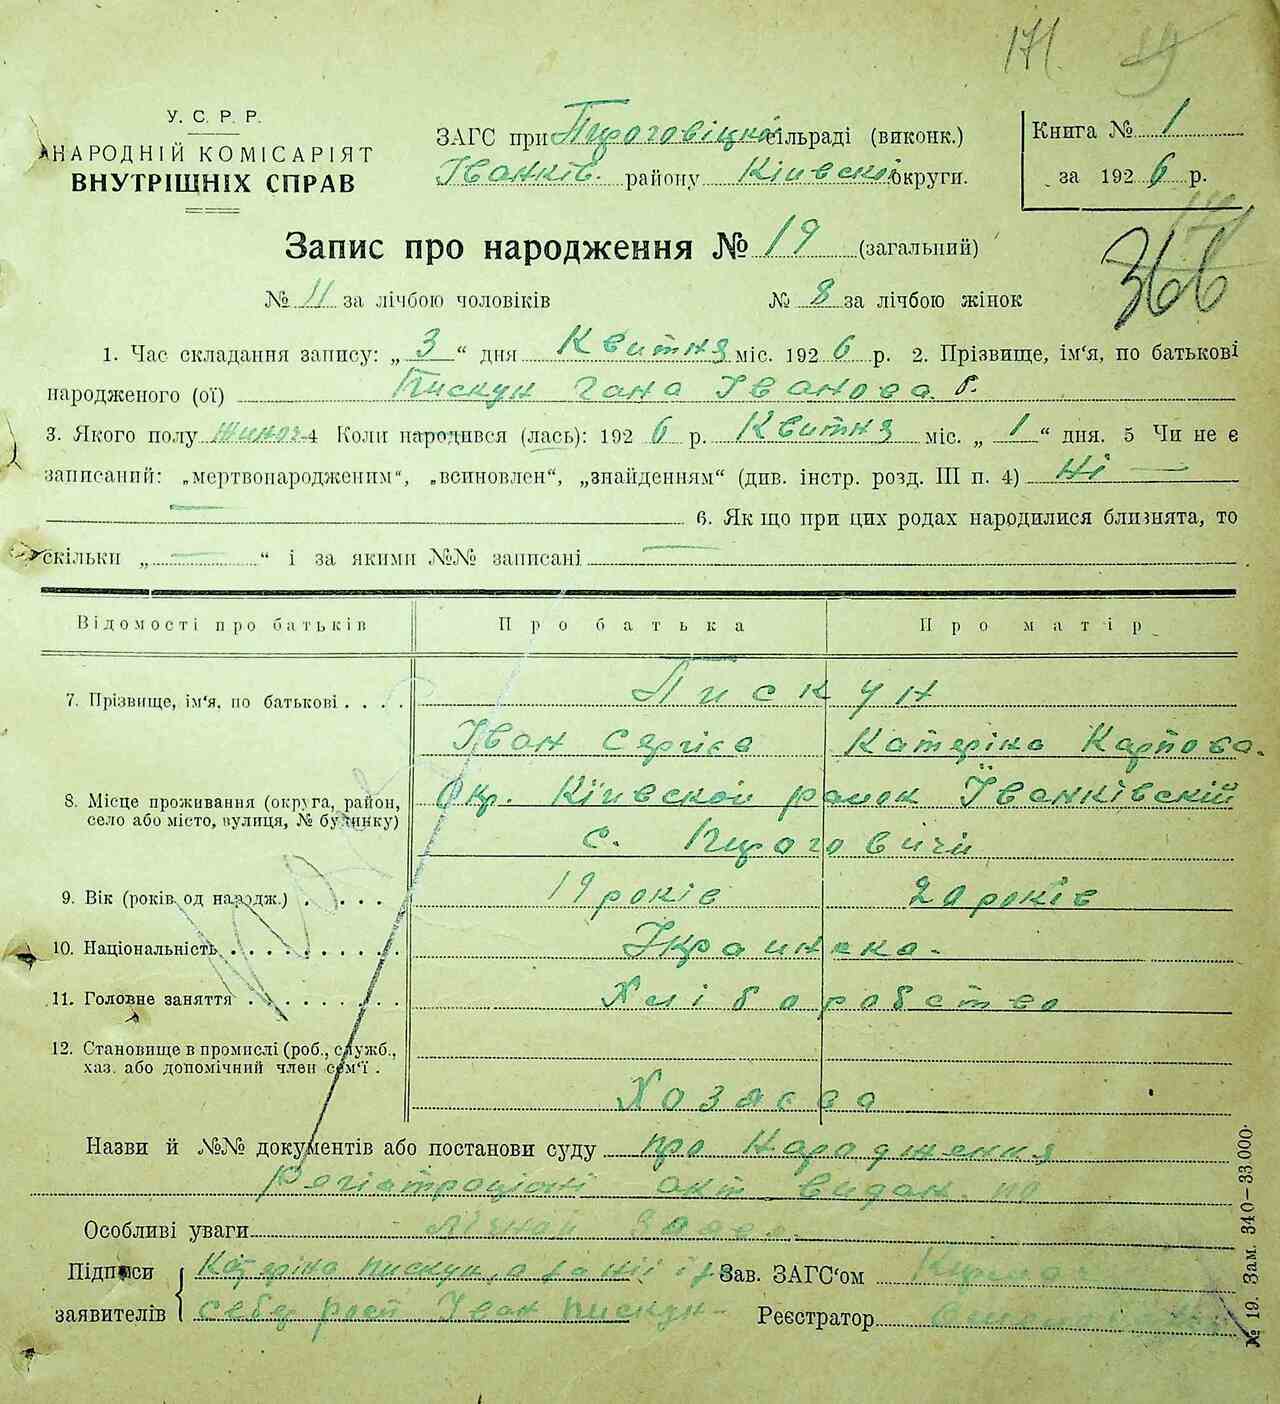 171. 19
У. С. Р. Р.
НАРОДНІЙ КОМІСАРІЯТ
ВНУТРІШНІХ СПРАВ
ЗАГС при Пироговіцкой сільраді (виконк.)
Іванків. району Кіивской округи.
Книга № 1
за 1926 р.
366
Запис про народження № 19 (загальний)
№ 11 за лічбою чоловіків № 8 за лічбою жінок
1. Час складання запису: „ 3 “ дня Квитня міс. 1926 р. 2. Прізвище, ім'я, по батькові
народженого (ої) Пискун Гана Іванова
3. Якого полу жиноч 4 Коли народився (лась): 1926 р. Квитня міс. „ 1 “ дня. 5 Чи не є
записаний: „мертвонародженим“, „всиновлен“, „знайденням“ (див. інстр. розд. III п. 4) Ні —
6. Як що при цих родах народилися близнята, то
скільки „ — “ і за якими №№ записані —
Відомості про батьків Про батька Про матір
7. Прізвище, ім'я, по батькові . . . . Пискун
Іван Сергієв Катеріна Карпова.
8. Місце проживання (округа, район, село або місто, вулиця, № будинку) Окр. Кіивской район Іванківскій
с. Пироговичи
9. Вік (років од народж.) . . . . . 19 років 20 років
10. Національність . . . . . . . . . Украинска.
11. Головне заняття . . . . . . . . Хліборобство
12. Становище в промислі (роб., служб., хаз. або допомічний член сем'ї . Хозаєва
Назви й №№ документів або постанови суду про Народження
Регіатроціоні акт видан. по
Особливі уваги лічной
Підписи заявителів Катеріна пискун, а за нііі і за
себе росп Іван пискун
Зав. ЗАГС'ом
Реєстратор
№ 19. Зам. 340–33.000.